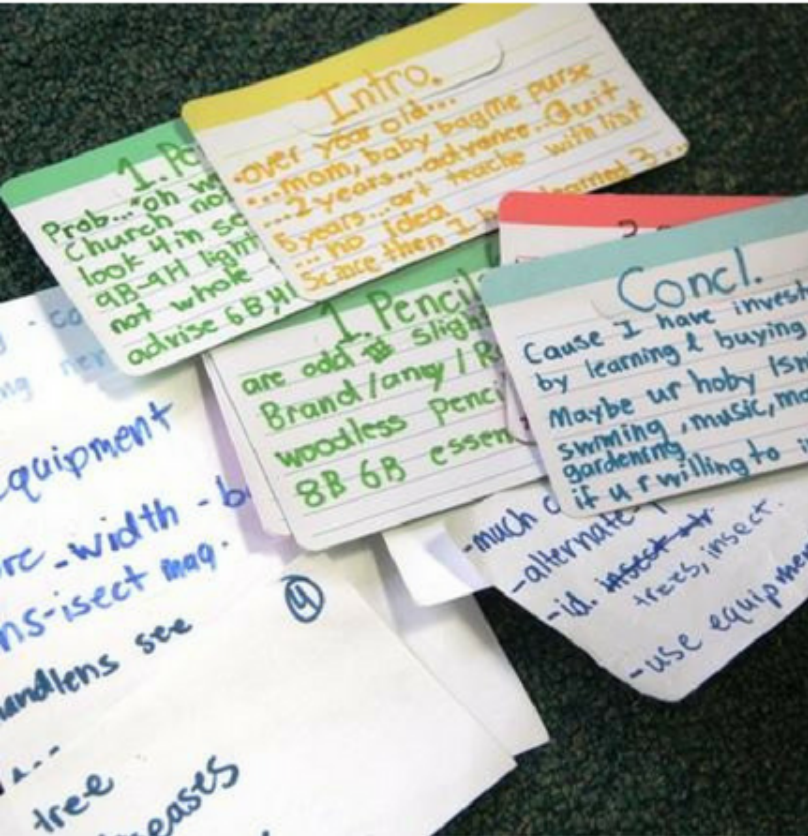 Intro.
-over year old...
...mom, baby bag me purse
...2 years...advance..Quit
5 years...art teache with list
...no idea
Scince then I learned 3...
1.
Prob..."oh
Church
look 4 in
9B-9H light
not whole
advise 6B,
1. Pencil
are odd sligh
Brand/any/
woodless penci
8B 6B essen
Concl.
Cause I have invest
by learning & buying
Maybe ur hoby isn
swming, music, ma
gardening
if u r willing to i
quipment
width -
ns-isect mag.
andlens see
4
tree
eases
-much
-alternate-
-id. insect
trees, insect.
-use equipme